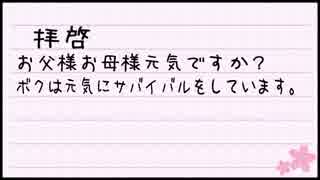 拝啓
お父様お母様元気ですか？
ボクは元気にサバイバルをしています。